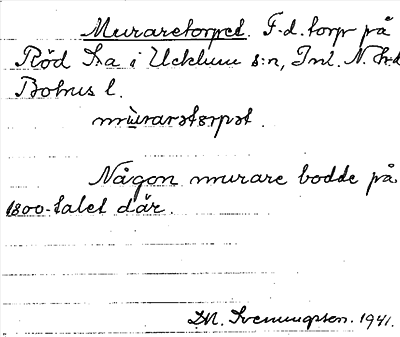 Muraretorpet. F.d. torp på
Röd S:a i Ucklum s:n, Inl. N. Hrd
Bohus l.
mùrarətɷrpət.
Någon murare bodde på
1800-talet där.
D.N. Svenungsson. 1941.